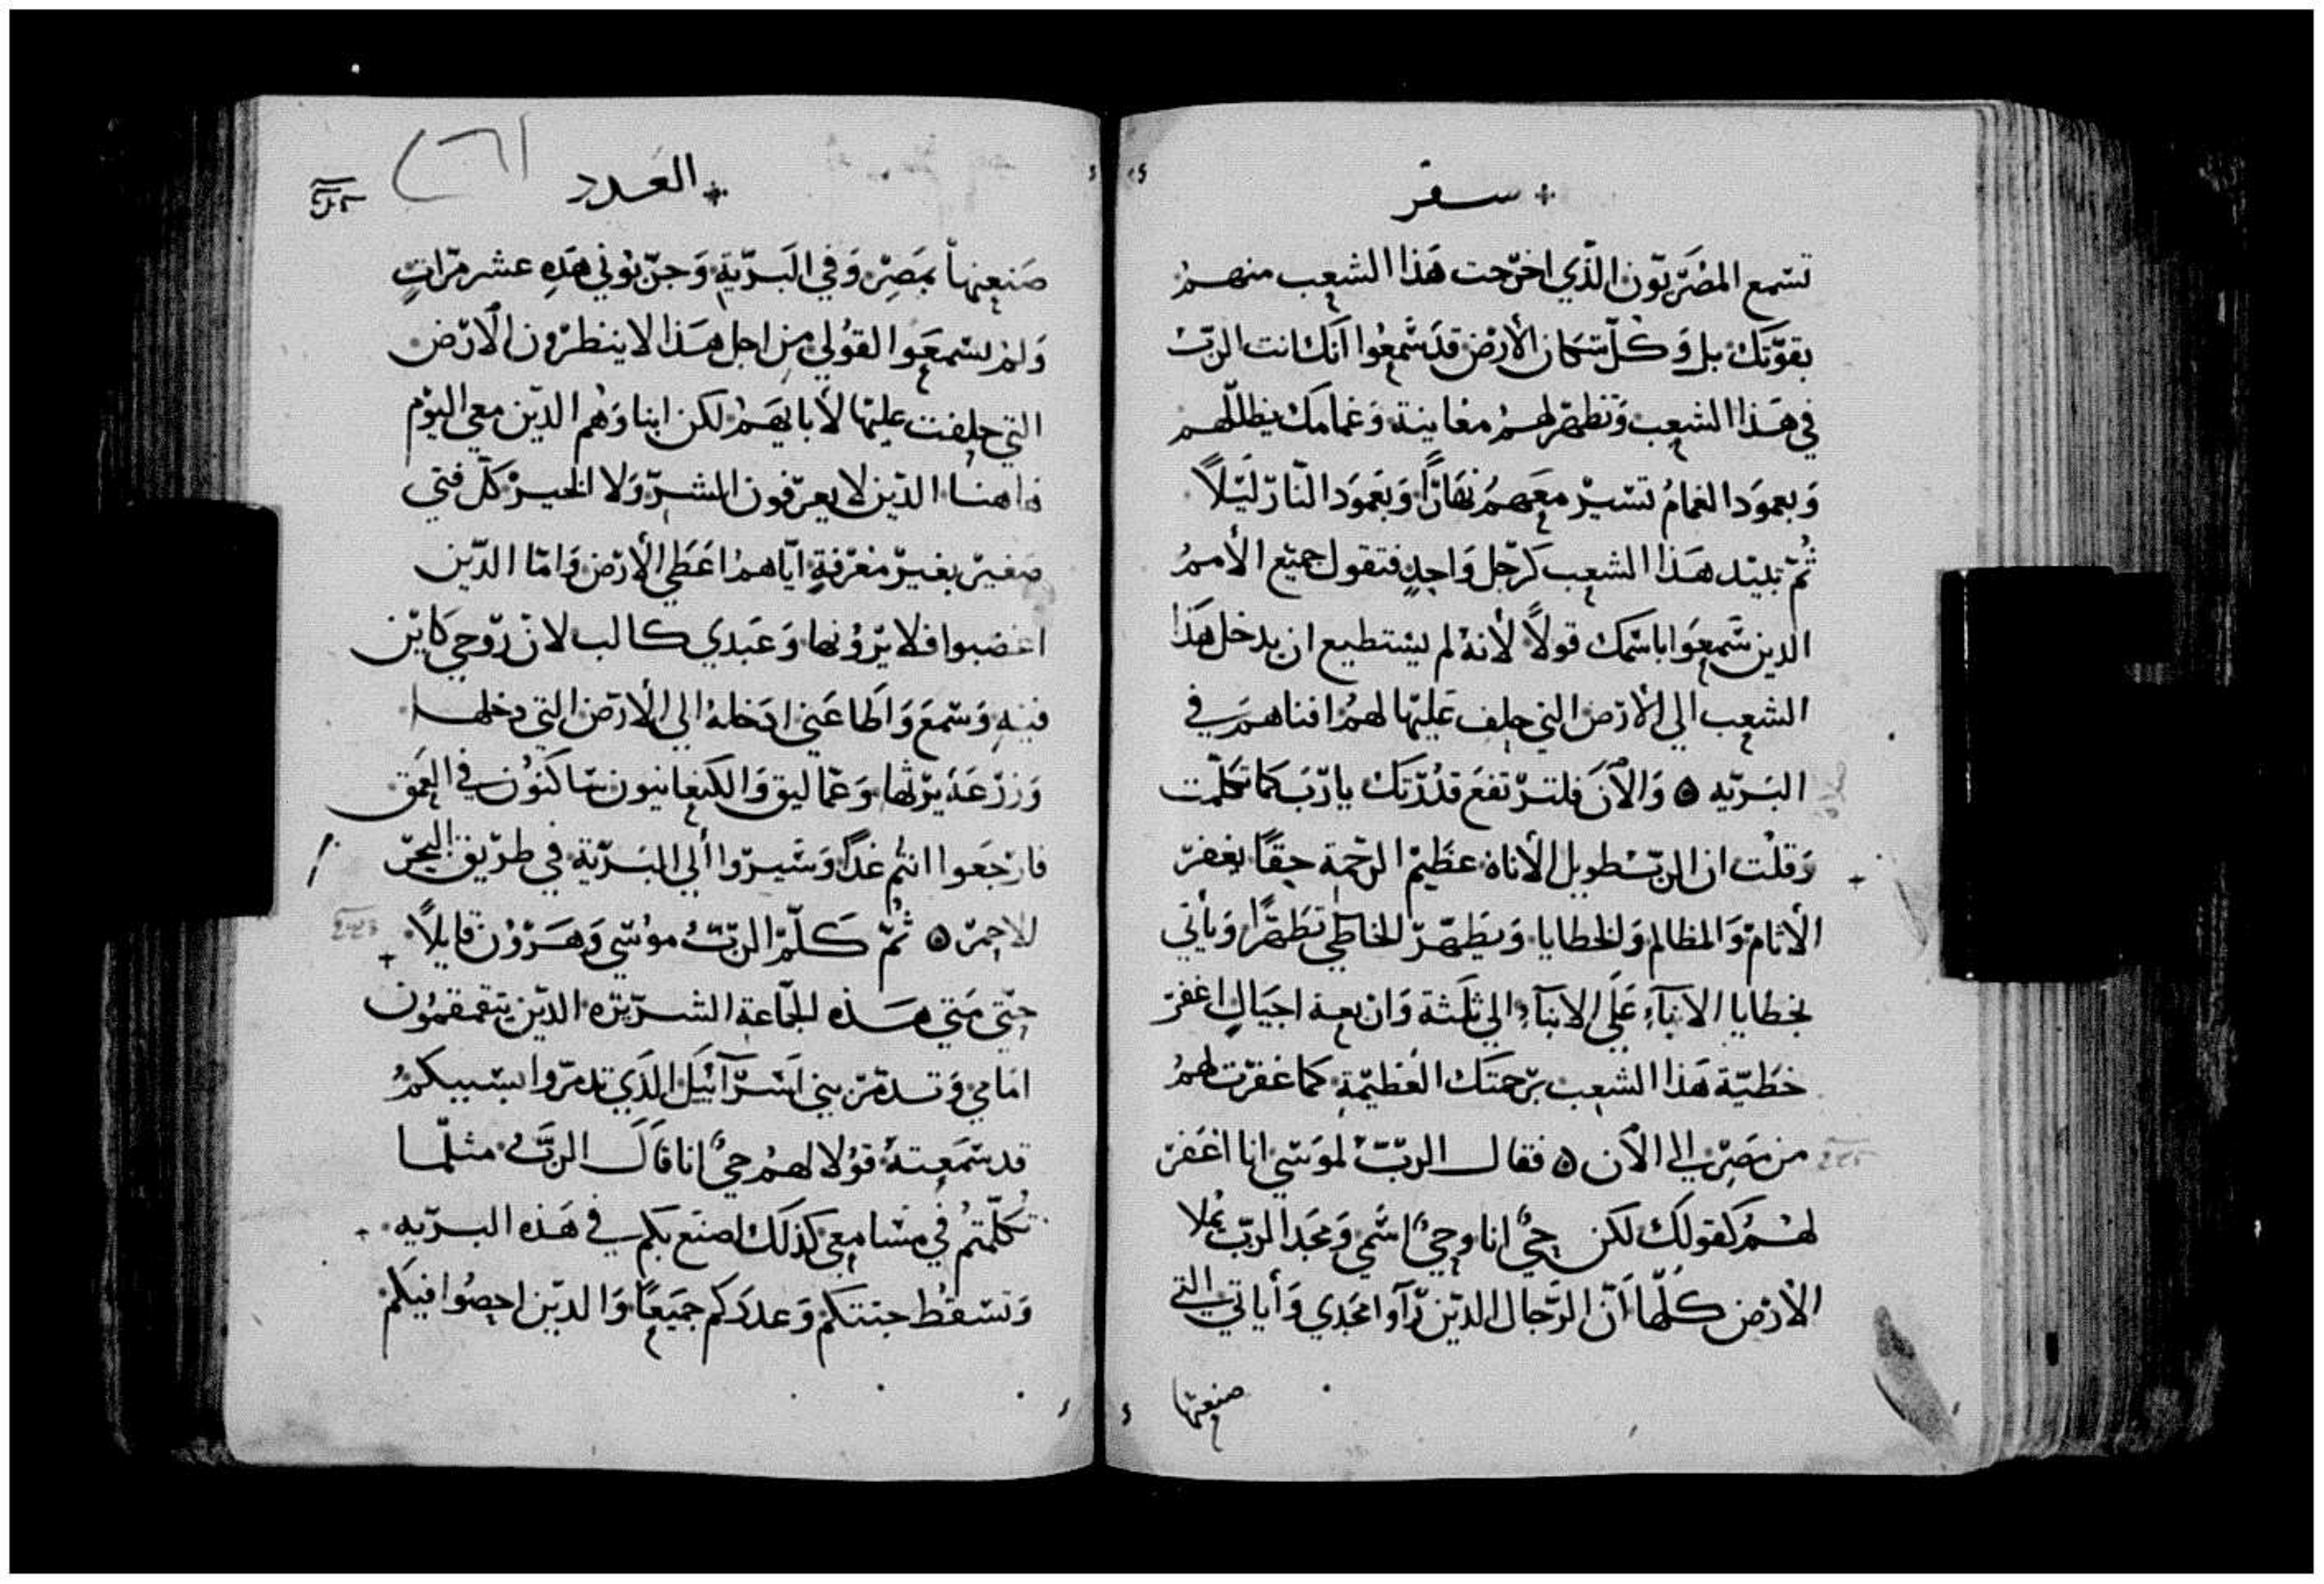 سفر
تسمع المصريون الذي اخرجت هذا الشعب منهم
بقوتك بل وكل سكان الأرض قد سمعوا انك انت الرب
في هذا الشعب وتظهر لهم معاينة وغمامك يظللهم
وبعمود الغمام تسير معهم نهارًا وبعمود النار ليلاً
ثم تبيد هذا الشعب كرجل واحد فتقول جميع الأمم
الدين سمعوا باسمك قولاً لأنه لم يستطيع ان يدخل هذا
الشعب الي الأرض التي حلف عليها لهم افناهم في
البريه ٥ والآن فلترتفع قدرتك يا رب كما تكلمت
وقلت ان الرب طويل الأناة عظيم الرحمة حقًا يغفر
الأثام والمظالم والخطايا ويطهر الخاطي تطهرًا ويأتي
بخطايا الاباء علي الابناء الي ثلثة واربعة اجيال اغفر
خطية هذا الشعب برحمتك العظيمة كما غفرت لهم
من مصر الي الآن ٥ فقال الرب لموسي انا اغفر
لهم كقولك لكن حي انا وحي اسمي ومجد الرب يملا
الأرض كلها أن الرجال الدين رآوا مجدي وأياتي التي
صنعتها
العدد
صنعتها بمصر وفي البرية وجربوني هذه عشر مرات
ولم يسمعوا لقولي من اجل هذا لا ينظرون الأرض
التي حلفت عليها لأبايهم لكن ابناوهم الدين معي اليوم
هاهنا الدين لا يعرفون الشر ولا الخير كل فتي
صغير بغير معرفة اياهم اعطي الأرض واما الدين
اغضبوا فلا يرونها وعبدي كالب لان روحي كاين
فيه وسمع واطاعني ادخله الي الأرض التي دخلها
وزرعه يرثها وعماليق والكنعانيون ساكنون في العمق
فارجعوا انتم غدًا وسيروا ألي البرية في طريق البحر
الاحمر ٥ ثم كلم الرب موسي وهرون قايلاً
حتي متي هذه الجماعة الشريره الدين يتقمقمون
امامي وتدمر بني اسرآئيل الذي تدمروا بسببكم
قد سمعته قولا لهم حي انا قال الرب مثلما
تكلمتم في مسامعي كذلك اصنع بكم في هذه البريه
وتسقط جثتكم وعددكم جميعًا والدين احصوا فيكم